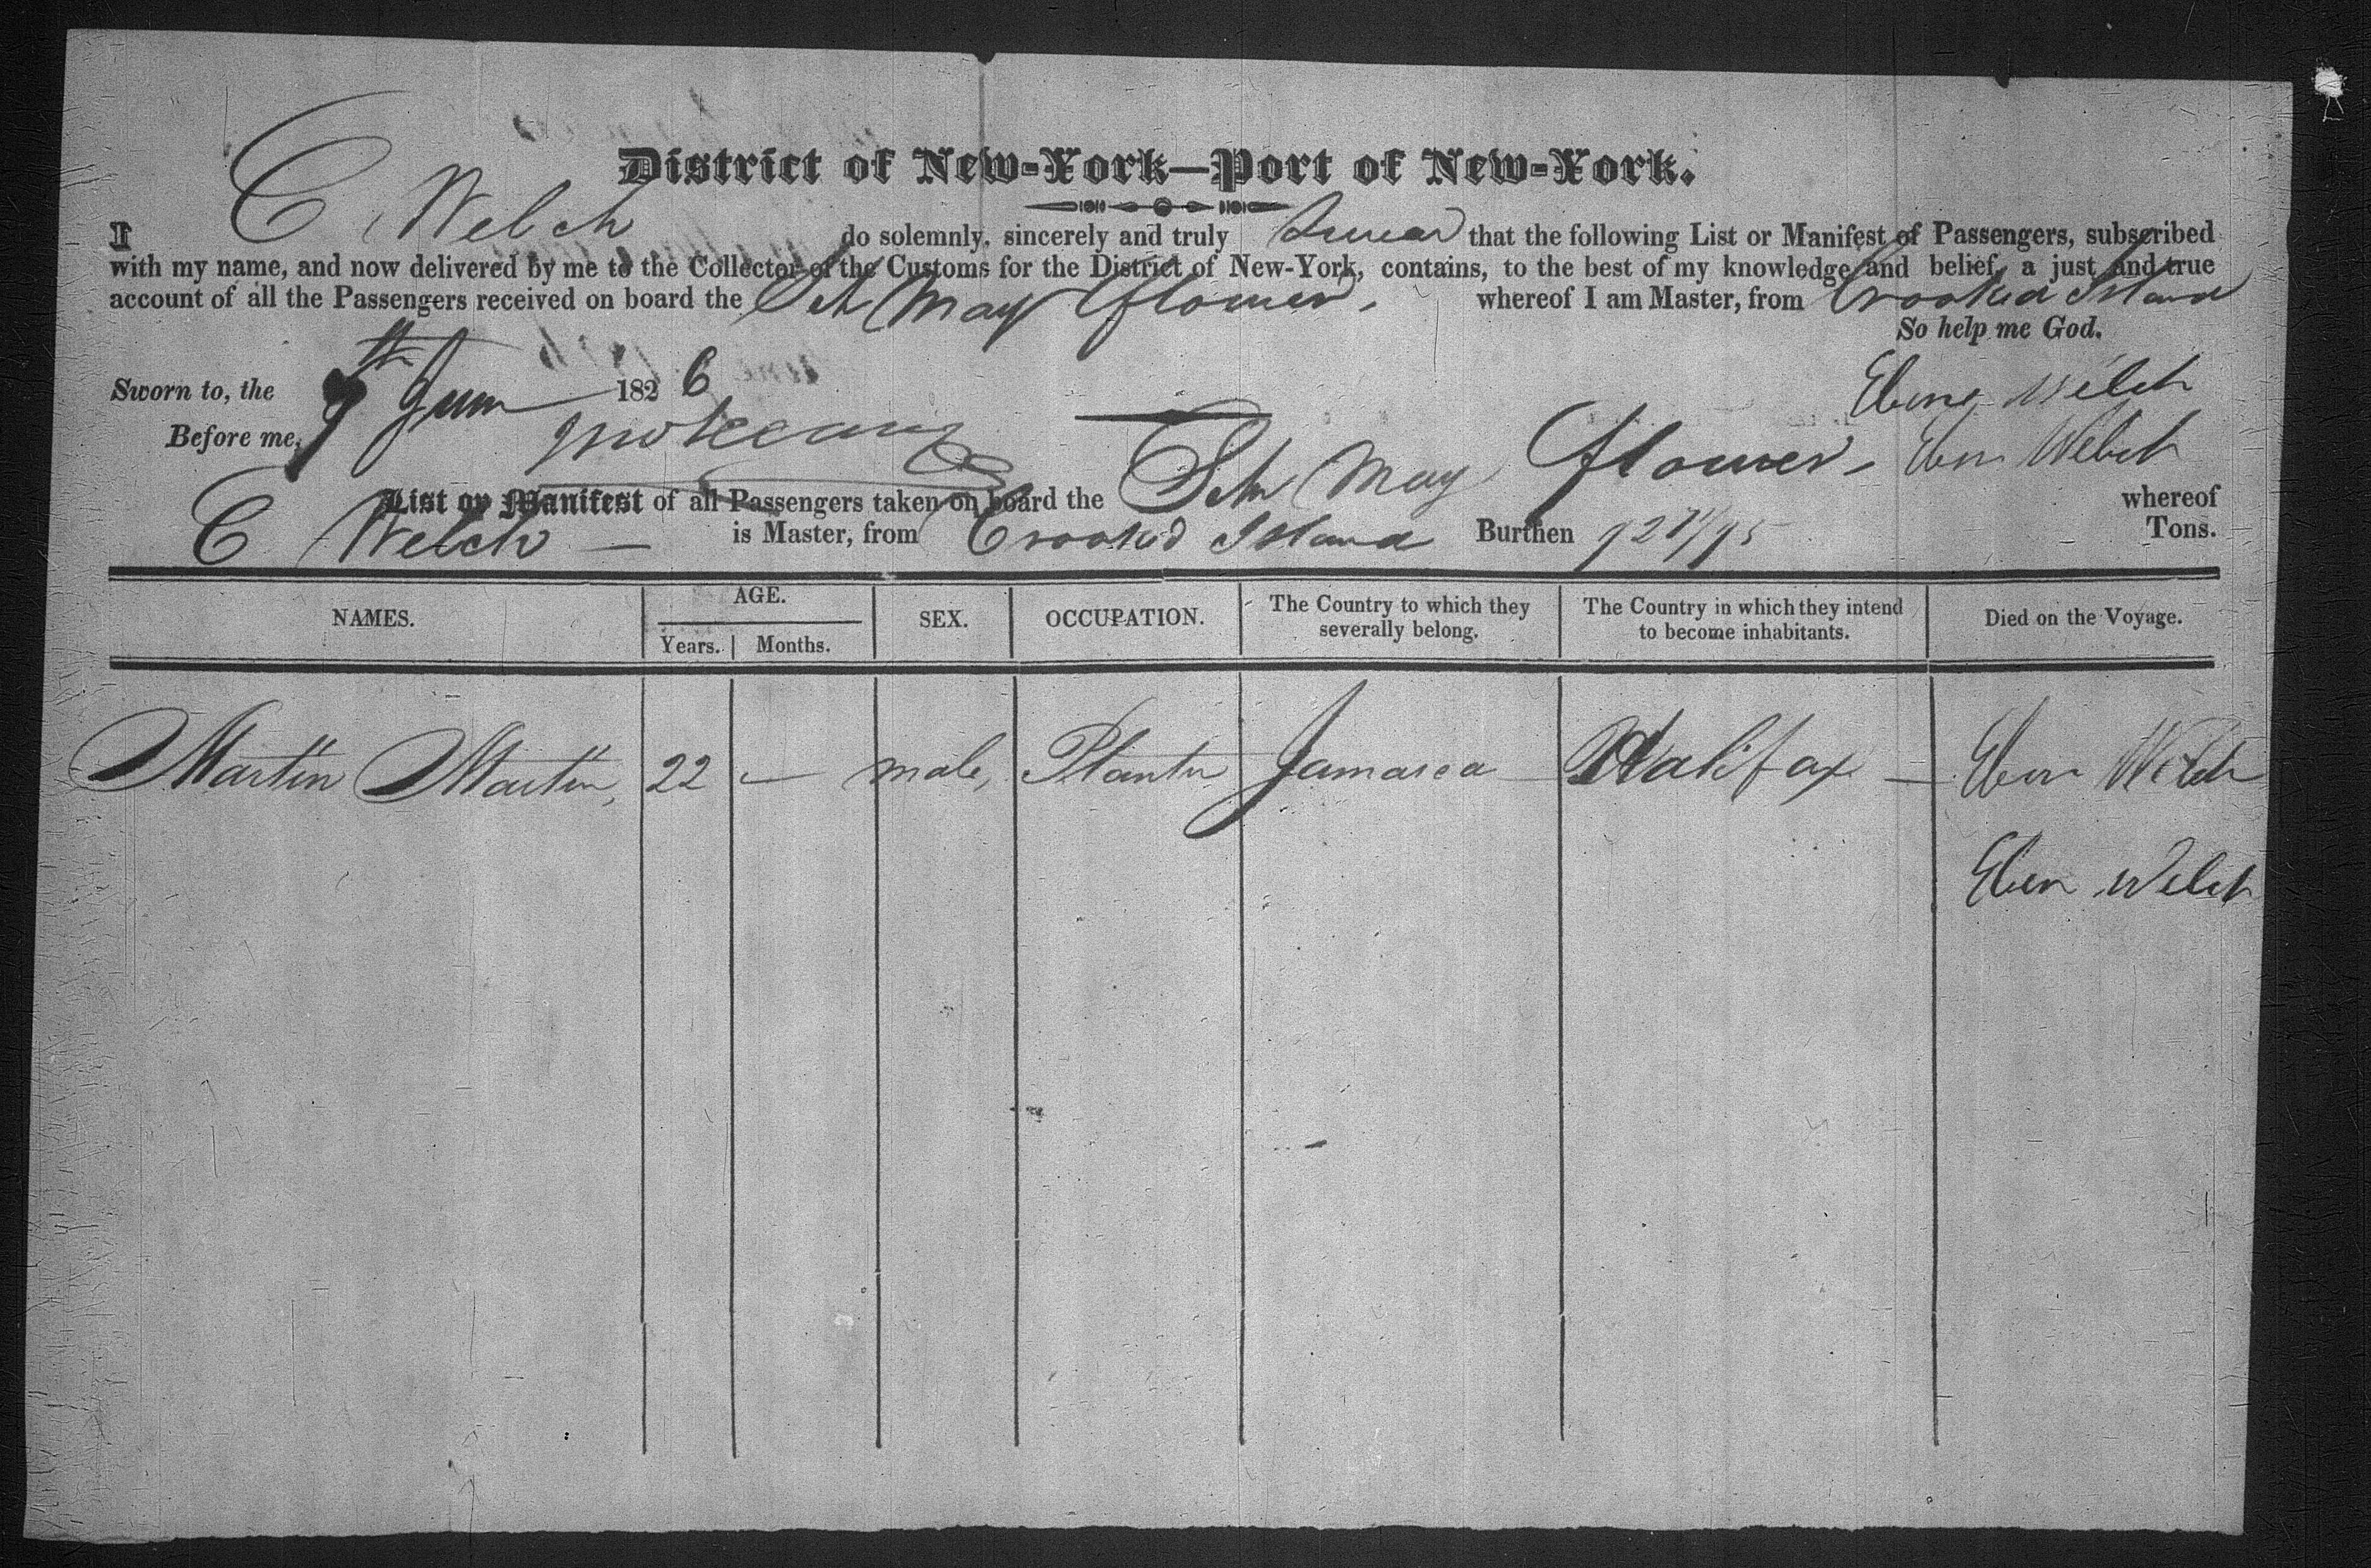 District of New-York—Port of New-York.
I E Welch do solemnly, sincerely and truly Swear that the following List or Manifest of Passengers, subscribed
with my name, and now delivered by me to the Collector of the Customs for the District of New-York, contains, to the best of my knowledge and belief, a just and true
account of all the Passengers received on board the Sch May Flower, whereof I am Master, from Crooked Island
So help me God.
Sworn to, the 9th June 1826 Eben Welch
Before me,
Eben Welch
List or Manifest of all Passengers taken on board the Schr May Flower - whereof
E Welch — is Master, from Crooked Island Burthen 92 71/95 Tons.
NAMES. AGE. Years. Months. SEX. OCCUPATION. The Country to which they severally belong. The Country in which they intend to become inhabitants. Died on the Voyage.
Martin Martin, 22 — male, Planter Jamaica — Halifax — Eben Welch
Eben Welch